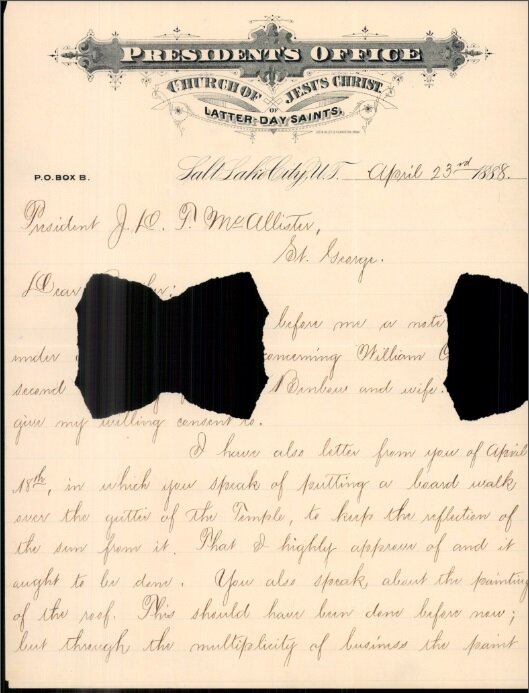 PRESIDENT'S OFFICE
CHURCH OF JESUS CHRIST
OF
LATTER-DAY SAINTS.
P.O. BOX B.
Salt Lake City, U.T. April 23rd 1888.
President J. D. T. McAllister,
St. George.
Dear
before me a note
under concerning William
second Benbow and wife.
give my willing consent to.
I have also letter from you of April
18th, in which you speak of putting a board walk
over the gutter of the Temple, to keep the reflection of
the sun from it. That I highly approve of and it
ought to be done. You also speak about the painting
of the roof. This should have been done before now;
but through the multiplicity of business the paint